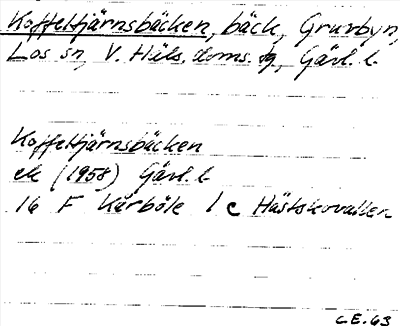 Koffeltjärnsbäcken, bäck, Gruvbyn,
Los sn, V. Häls. doms. dg, Gävl. l.
Koffeltjärnsbäcken
ek (1958) Gävl. l
16 F Kårböle 1 c Hästskovallen
C.E. 63